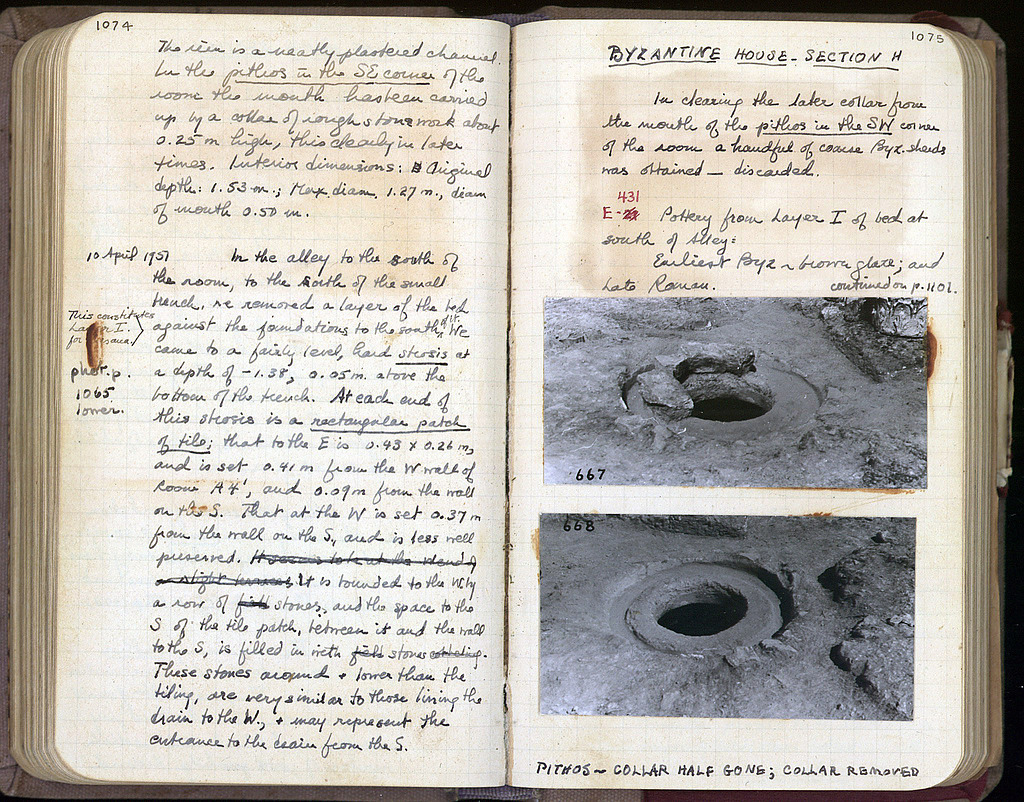 1074
The rim is a neatly plastered channel.
In the pithos in the SE corner of the
room the mouth has been carried
up by a collar of rough stone work about
0.25 m high, this clearly in later
times. Interior dimensions: Original
depth: 1.53 m.; Max. diam. 1.27 m., diam
of mouth 0.50 m.
10 April 1957 In the alley to the south of
the room, to the south of the small
trench, we removed a layer of the bed
against the foundations to the south. We
This constitutes
Layer I.
for
came to a fairly level, hard strosis at
a depth of -1.38, 0.05 m. above the
phot. p.
1065
lower.
bottom of the trench. At each end of
this strosis is a rectangular patch
of tile; that to the E is 0.43 x 0.26 m,
and is set 0.41 m from the W wall of
Room A4', and 0.09 m from the wall
on the S. That at the W is set 0.37 m
from the wall on the S, and is less well
preserved. It seems to be at the W end of
a slight It is bounded to the W by
a row of field stones, and the space to the
S of the tile patch, between it and the wall
to the S, is filled in with field stones cobbling.
These stones around + lower than the
tiling, are very similar to those lining the
drain to the W., + may represent the
entrance to the drain from the S.
1075
BYZANTINE HOUSE - SECTION H
In clearing the later collar from
the mouth of the pithos in the SW corner
of the room a handful of coarse Byz. sherds
was obtained — discarded.
431
E- Pottery from Layer I of bed at
south of Alley:
Earliest Byz ~ brown glaze; and
Late Roman. continued on p. 1101.
667
668
PITHOS ~ COLLAR HALF GONE; COLLAR REMOVED